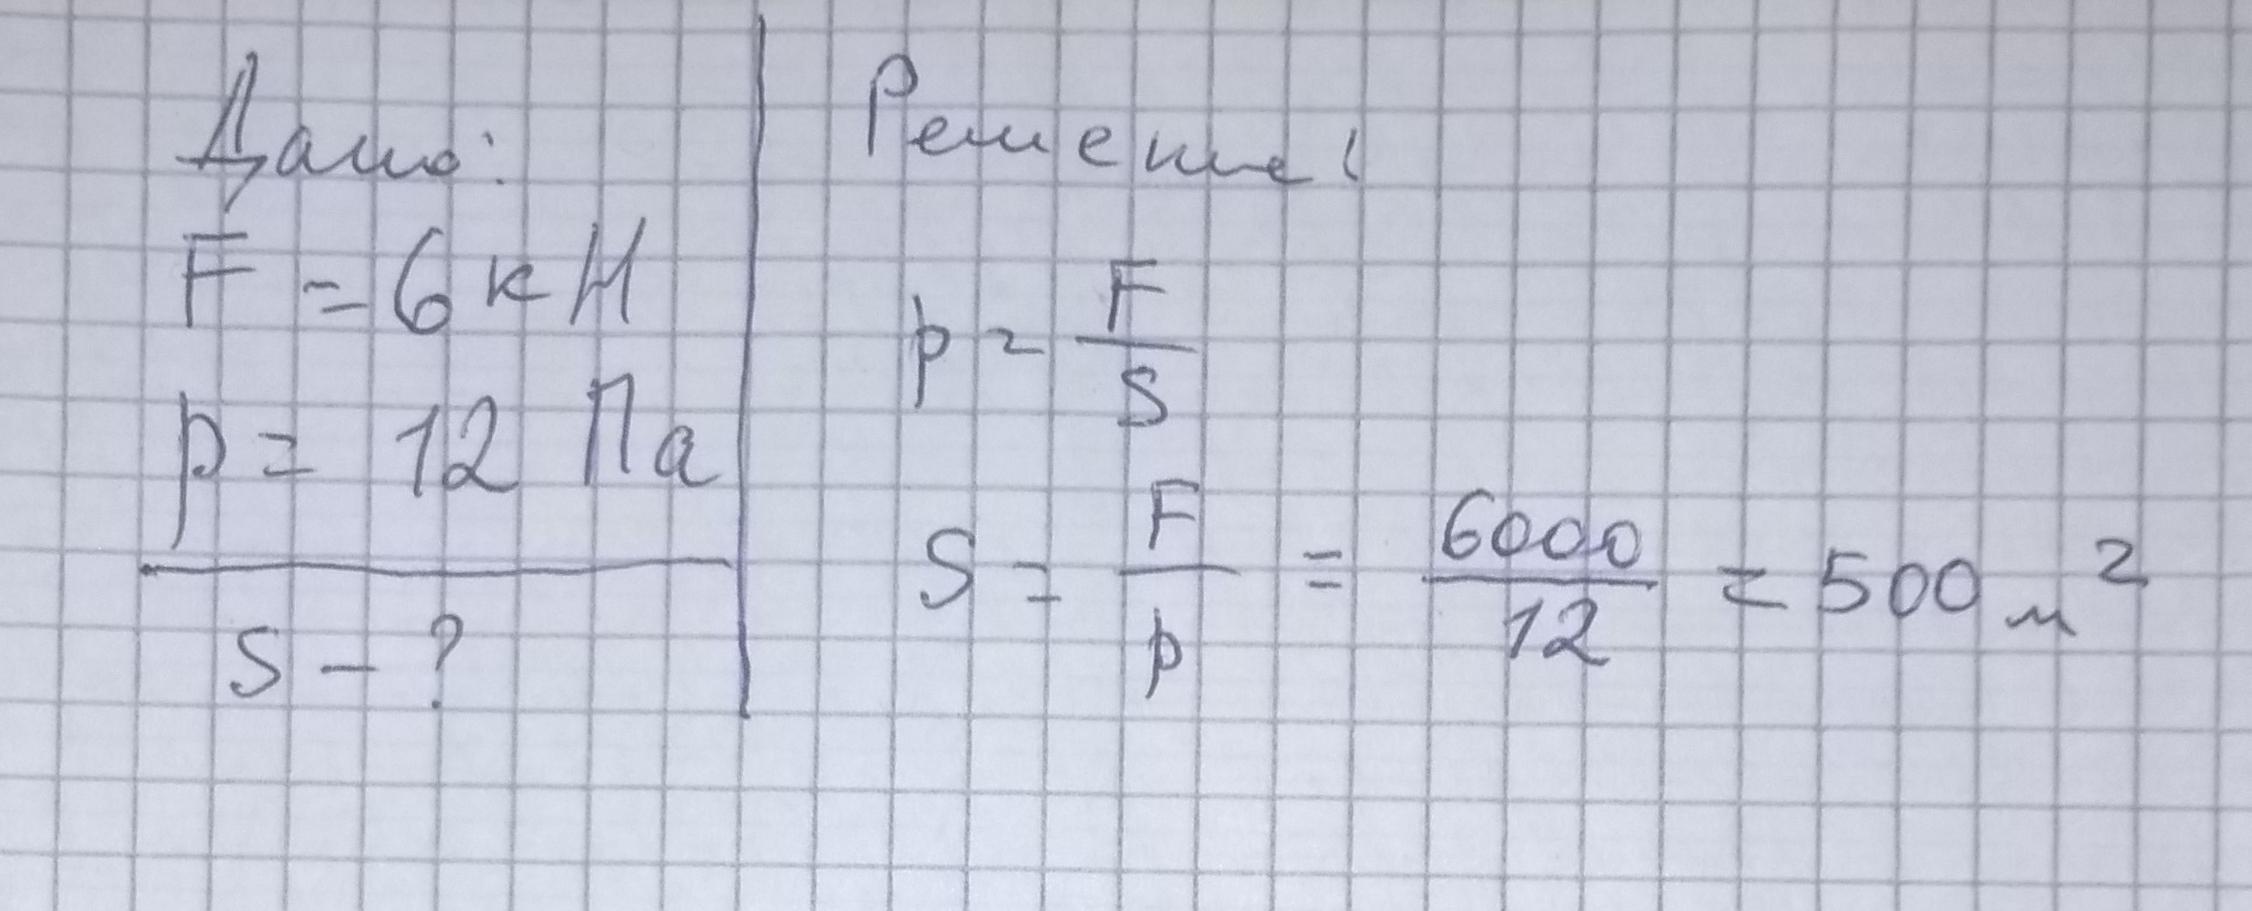 Дано:
F = 6 кН
p = 12 Па
S - ?
Решение:
p = F/S
S = F/p = 6000/12 = 500 м²